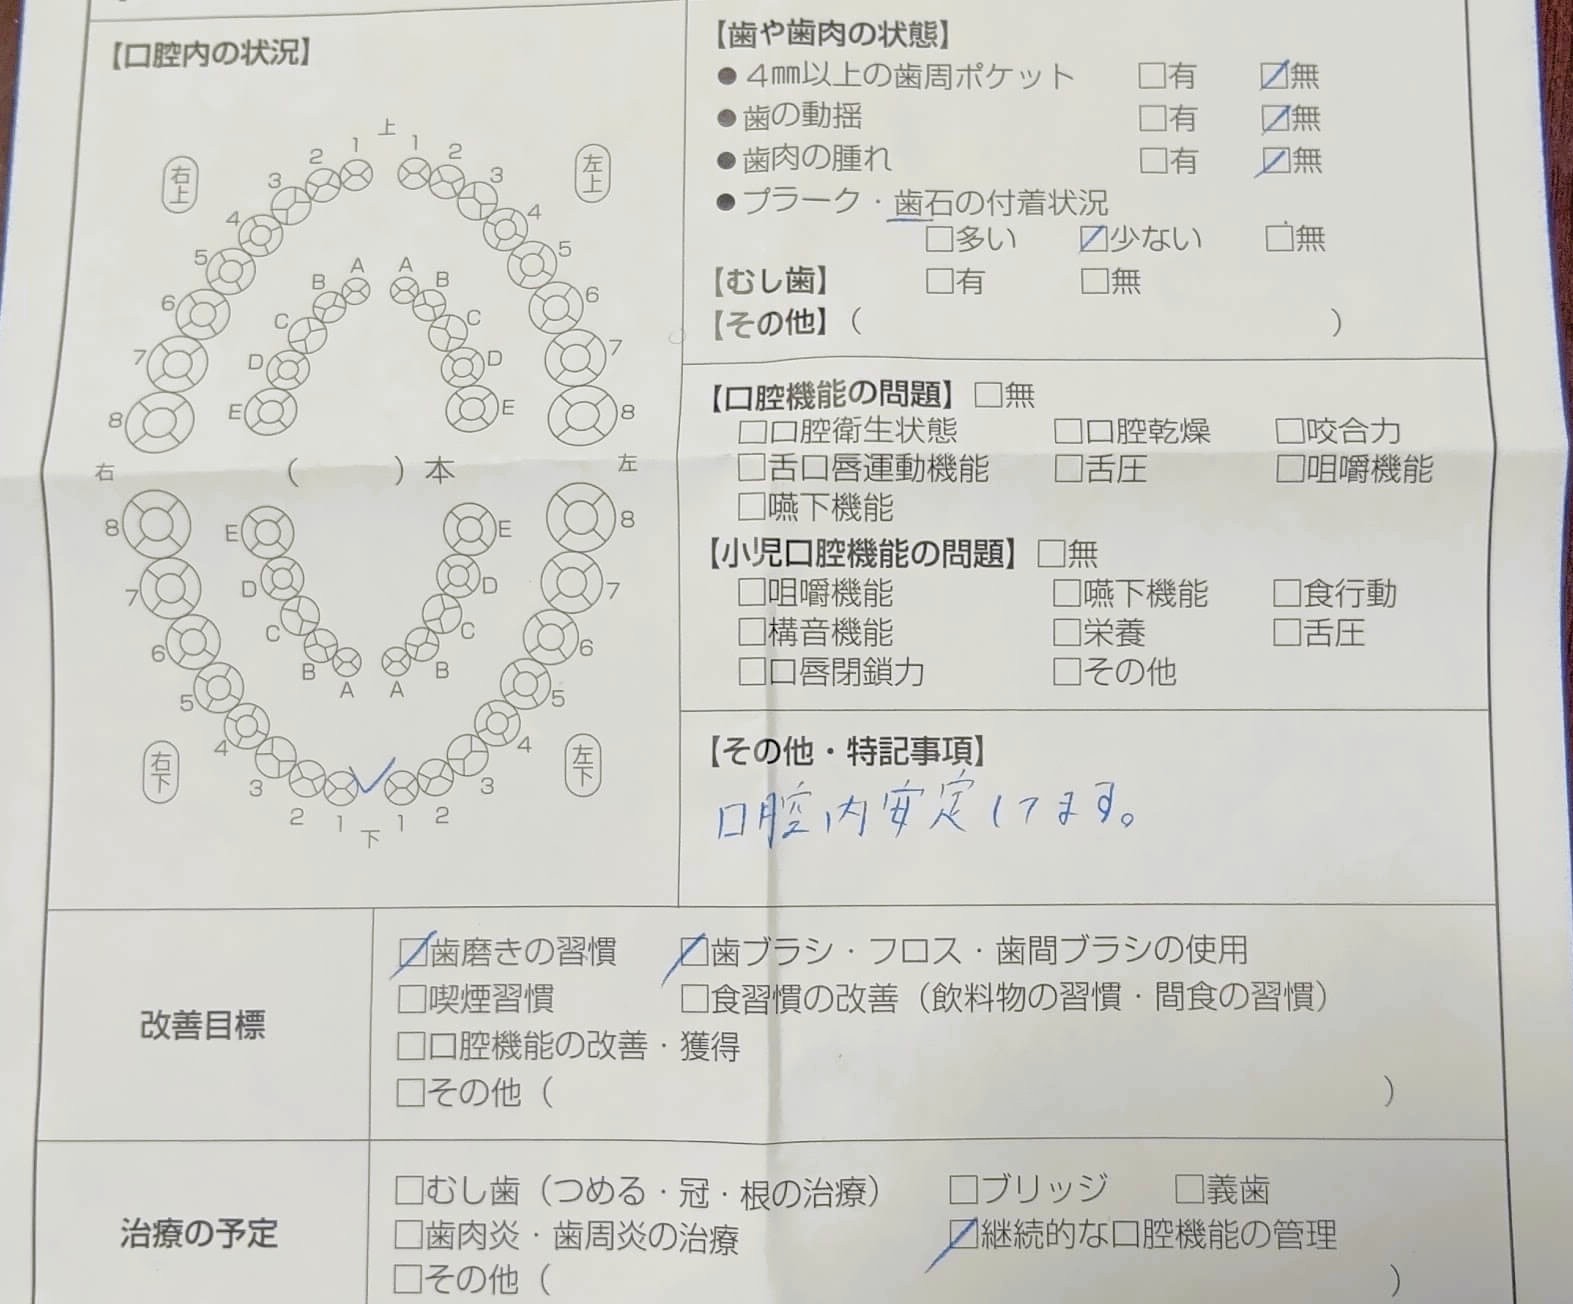 【口腔内の状況】
上
右上
左上
1 1
2 2
3 3
4 4
5 5
6 6
7 7
8 8
A A
B B
C C
D D
E E
右 ( )本 左
8 8
7 7
6 6
5 5
4 4
3 3
2 2
1 1
E E
D D
C C
B B
A A
右下
左下
下
【歯や歯肉の状態】
●4㎜以上の歯周ポケット □有 ☑無
●歯の動揺 □有 ☑無
●歯肉の腫れ □有 ☑無
●プラーク・歯石の付着状況
□多い ☑少ない □無
【むし歯】 □有 □無
【その他】( )
【口腔機能の問題】□無
□口腔衛生状態 □口腔乾燥 □咬合力
□舌口唇運動機能 □舌圧 □咀嚼機能
□嚥下機能
【小児口腔機能の問題】□無
□咀嚼機能 □嚥下機能 □食行動
□構音機能 □栄養 □舌圧
□口唇閉鎖力 □その他
【その他・特記事項】
口腔内安定してます。
改善目標
☑歯磨きの習慣 ☑歯ブラシ・フロス・歯間ブラシの使用
□喫煙習慣 □食習慣の改善(飲料物の習慣・間食の習慣)
□口腔機能の改善・獲得
□その他( )
治療の予定
□むし歯(つめる・冠・根の治療) □ブリッジ □義歯
□歯肉炎・歯周炎の治療 ☑継続的な口腔機能の管理
□その他( )